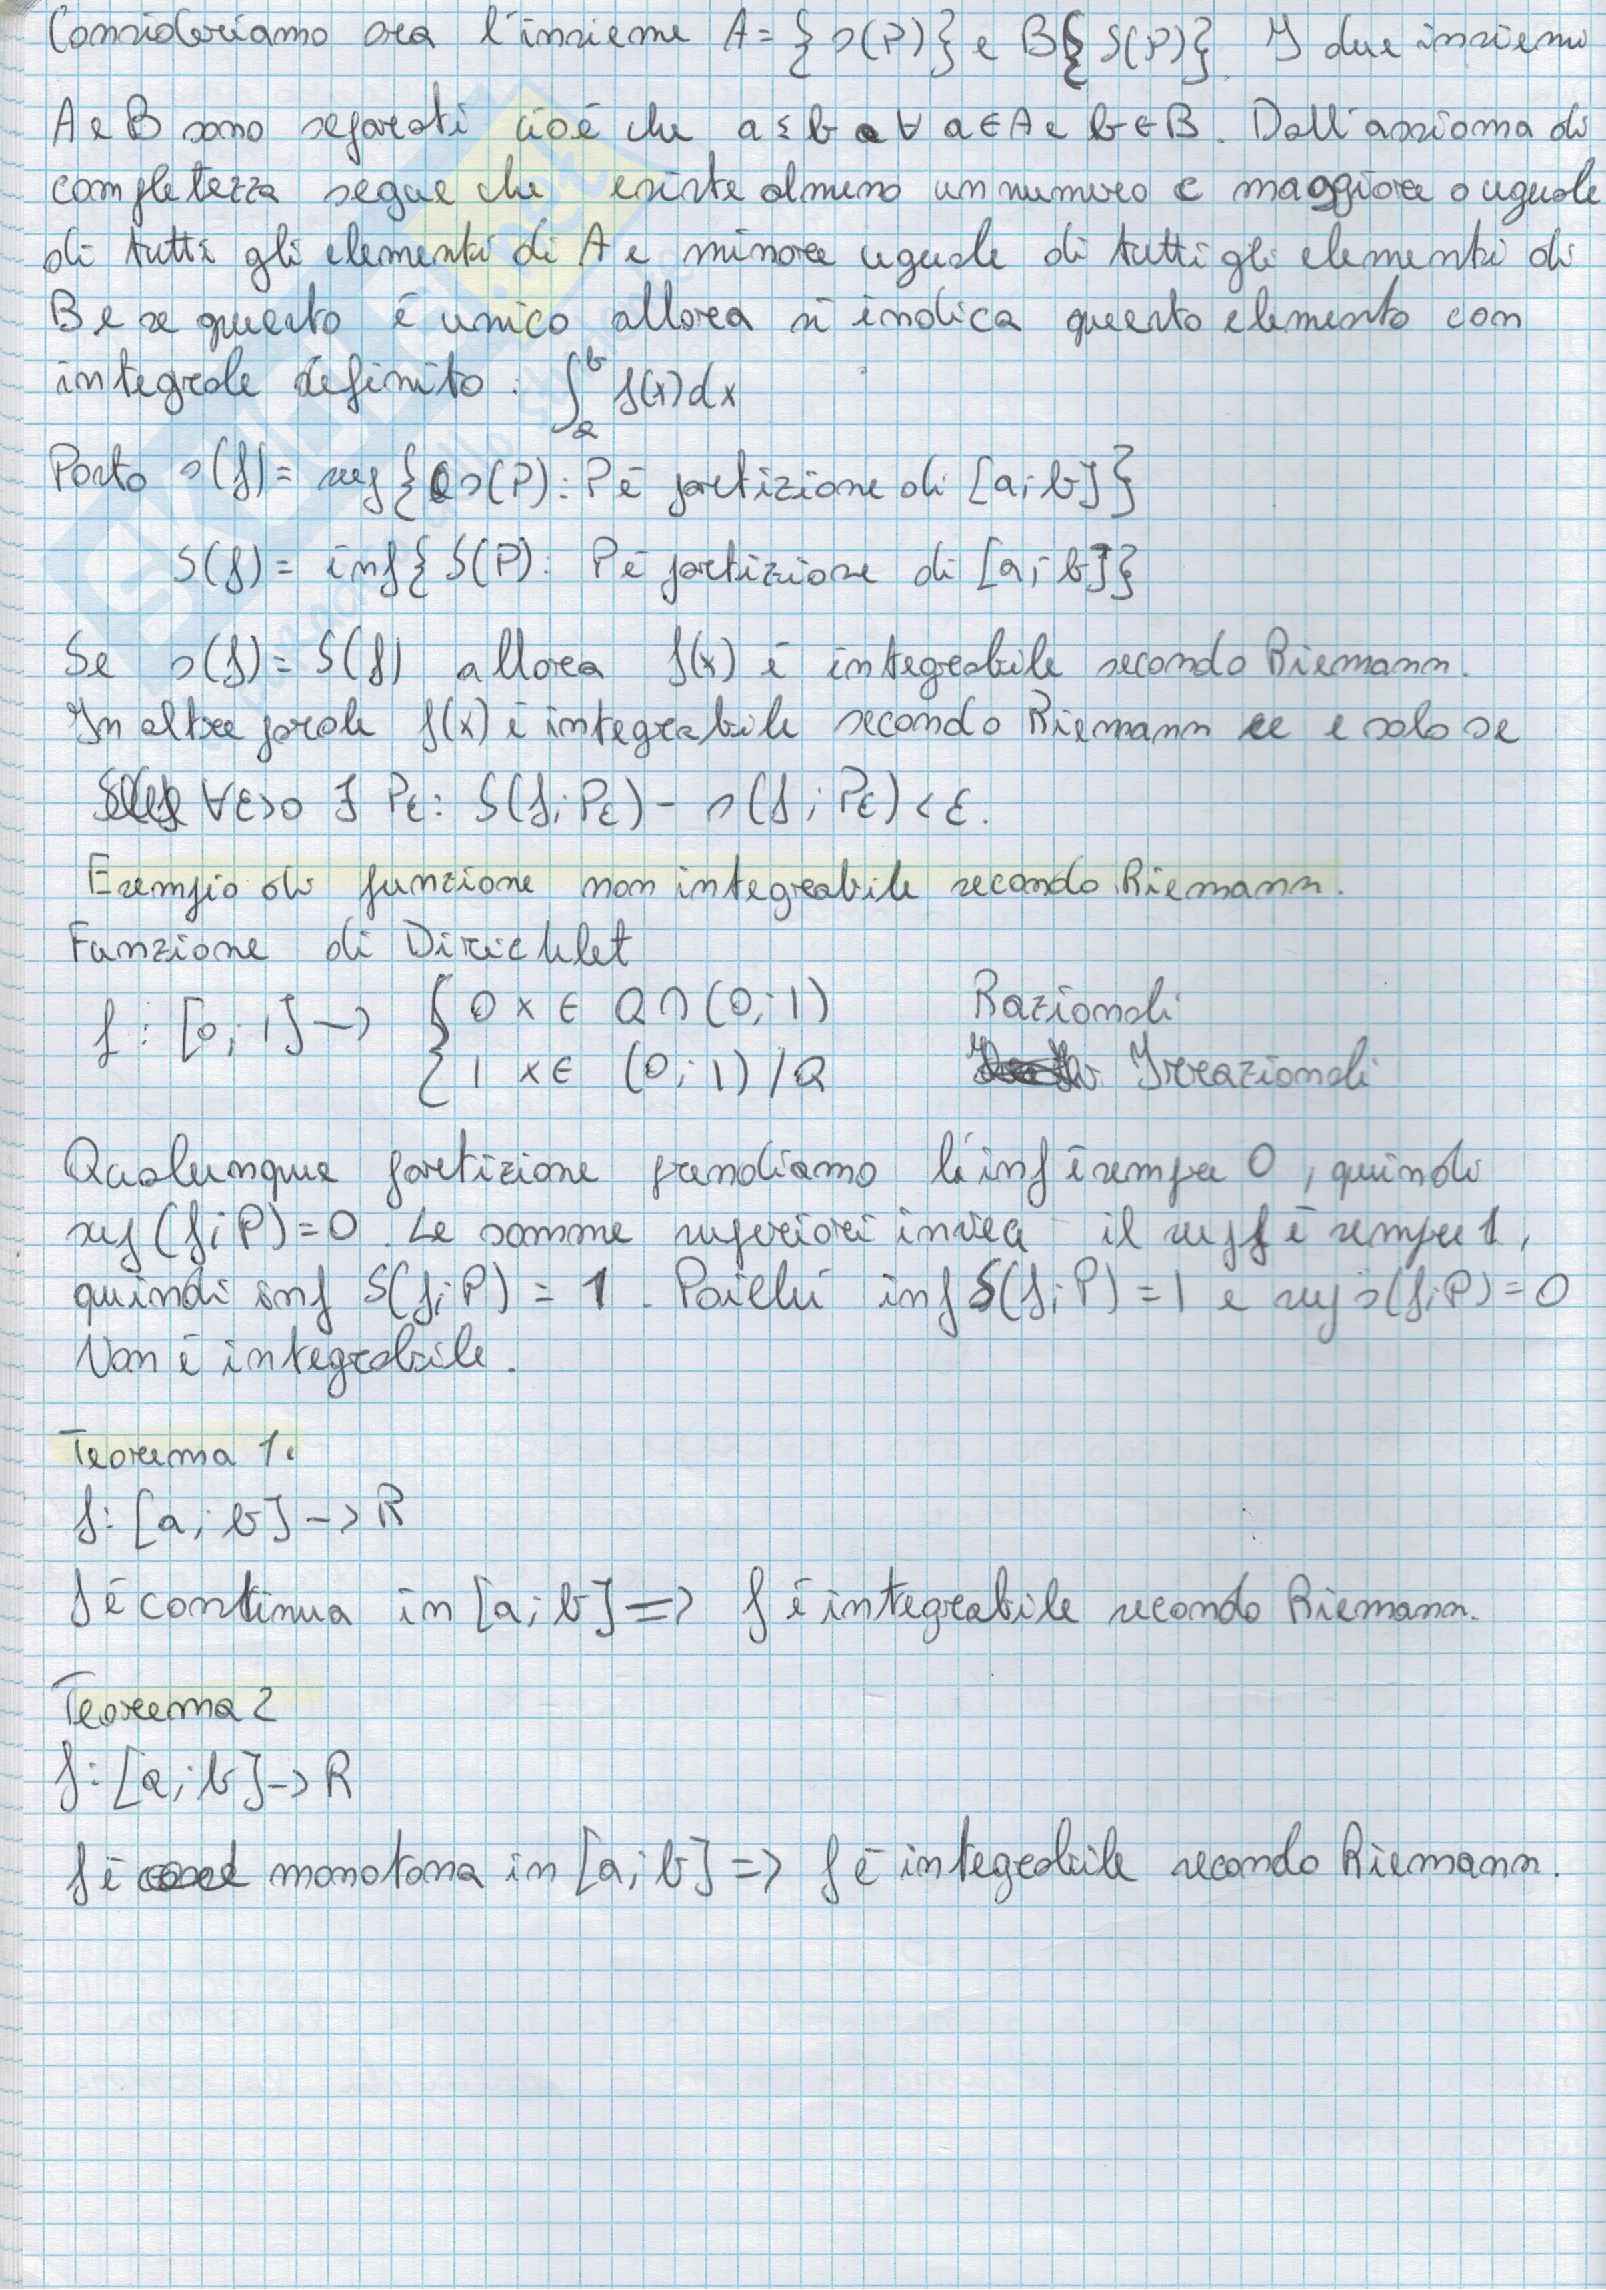 Consideriamo ora l'insieme A = {s(P)} e B{S(P)}. I due insiemi
A e B sono separati cioé che a ≤ b ∀ a ∈ A e b ∈ B. Dall'assioma di
completezza segue che esiste almeno un numero c maggiore o uguale
di tutti gli elementi di A e minore uguale di tutti gli elementi di
B e se questo é unico allora si indica questo elemento con
integrale definito: ∫_a^b f(x)dx
Posto s(f) = sup{s(P): P é partizione di [a; b]}
S(f) = inf{S(P): P é partizione di [a; b]}
Se s(f) = S(f) allora f(x) é integrabile secondo Riemann.
In altre parole f(x) é integrabile secondo Riemann se e solo se
∀ε>0 ∃ Pε: S(f; Pε) - s(f; Pε) < ε.
Esempio di funzione non integrabile secondo Riemann.
Funzione di Dirichlet
f: [0; 1] -> { 0 x ∈ Q ∩ (0; 1) Razionali
1 x ∈ (0; 1) / Q Irrazionali
Qualunque partizione prendiamo l'inf é sempre 0, quindi
sup (f; P) = 0. Le somme superiori invece il sup f é sempre 1,
quindi inf S(f; P) = 1. Poiché inf S(f; P) = 1 e sup s(f; P) = 0
Non é integrabile.
Teorema 1.
f: [a; b] -> R
f é continua in [a; b] => f é integrabile secondo Riemann.
Teorema 2
f: [a; b] -> R
f é monotona in [a; b] => f é integrabile secondo Riemann.